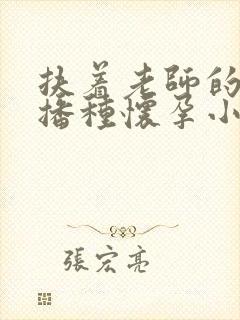 扶着老師的
播種懷孕小
張宏亮